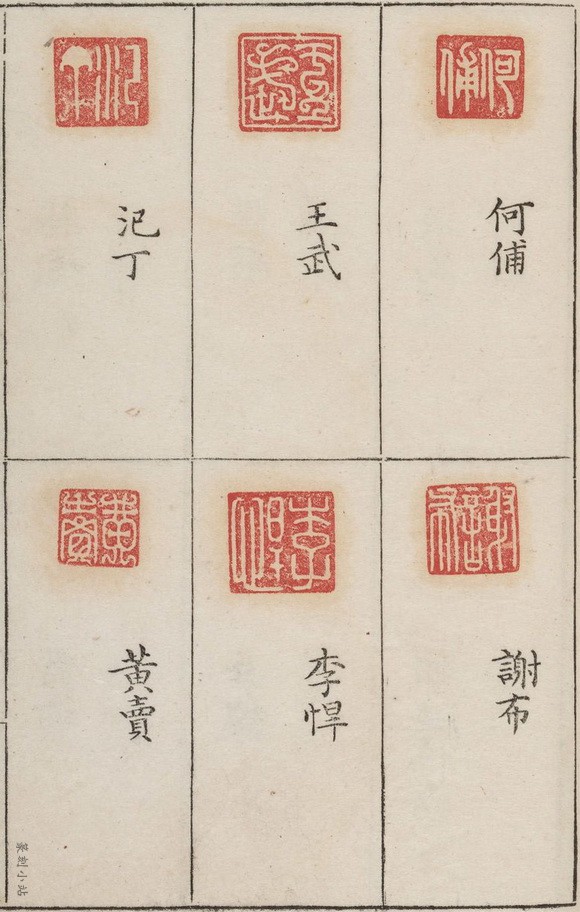 何俌
王武
汜丁
謝布
李悍
黃賣
篆刻小站